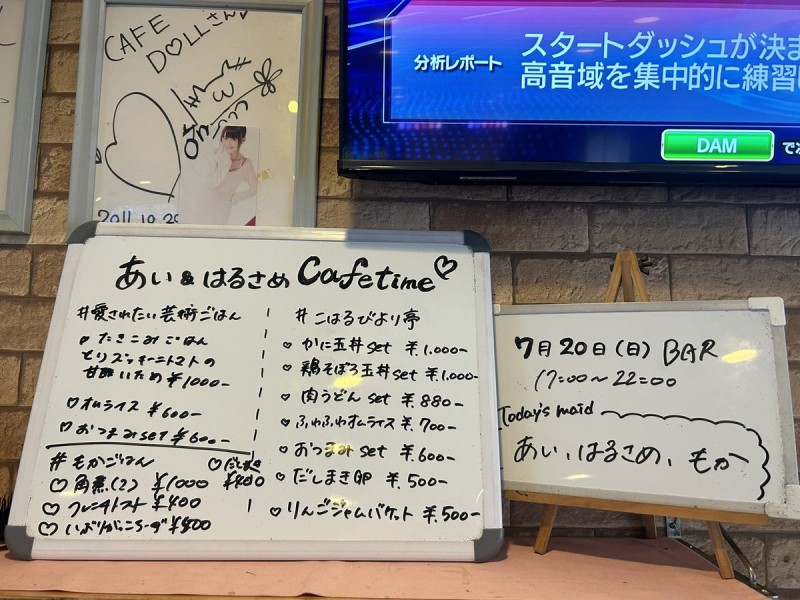 CAFE
DOLLさん
2011.10.29
分析レポート
スタートダッシュが決ま
高音域を集中的に練習
DAM
で
あい & はるさめ Cafetime♡
#愛されたい芸術ごはん
♡ たきこみごはん
とりズッキーニトマトの
甘酢いため ¥1000-
♡オムライス ¥600-
♡おつまみset ¥600-
#もかごはん
♡だしまき ¥400
♡角煮(2) ¥1000
♡フレンチトースト ¥400
♡いぶりがっこチーズ ¥400
#こはるびより亭
♡ かに玉丼set ¥.1.000-
♡ 鶏そぼろ玉丼set ¥.1.000-
♡ 肉うどんset ¥.880-
♡ ふわふわオムライス ¥.700-
♡ おつまみset ¥.600-
♡ だしまき卵 ¥.500-
♡ りんごジャムバケット ¥.500-
7月20日(日) BAR
17:00〜22:00
Today's maid
あい、はるさめ、もか